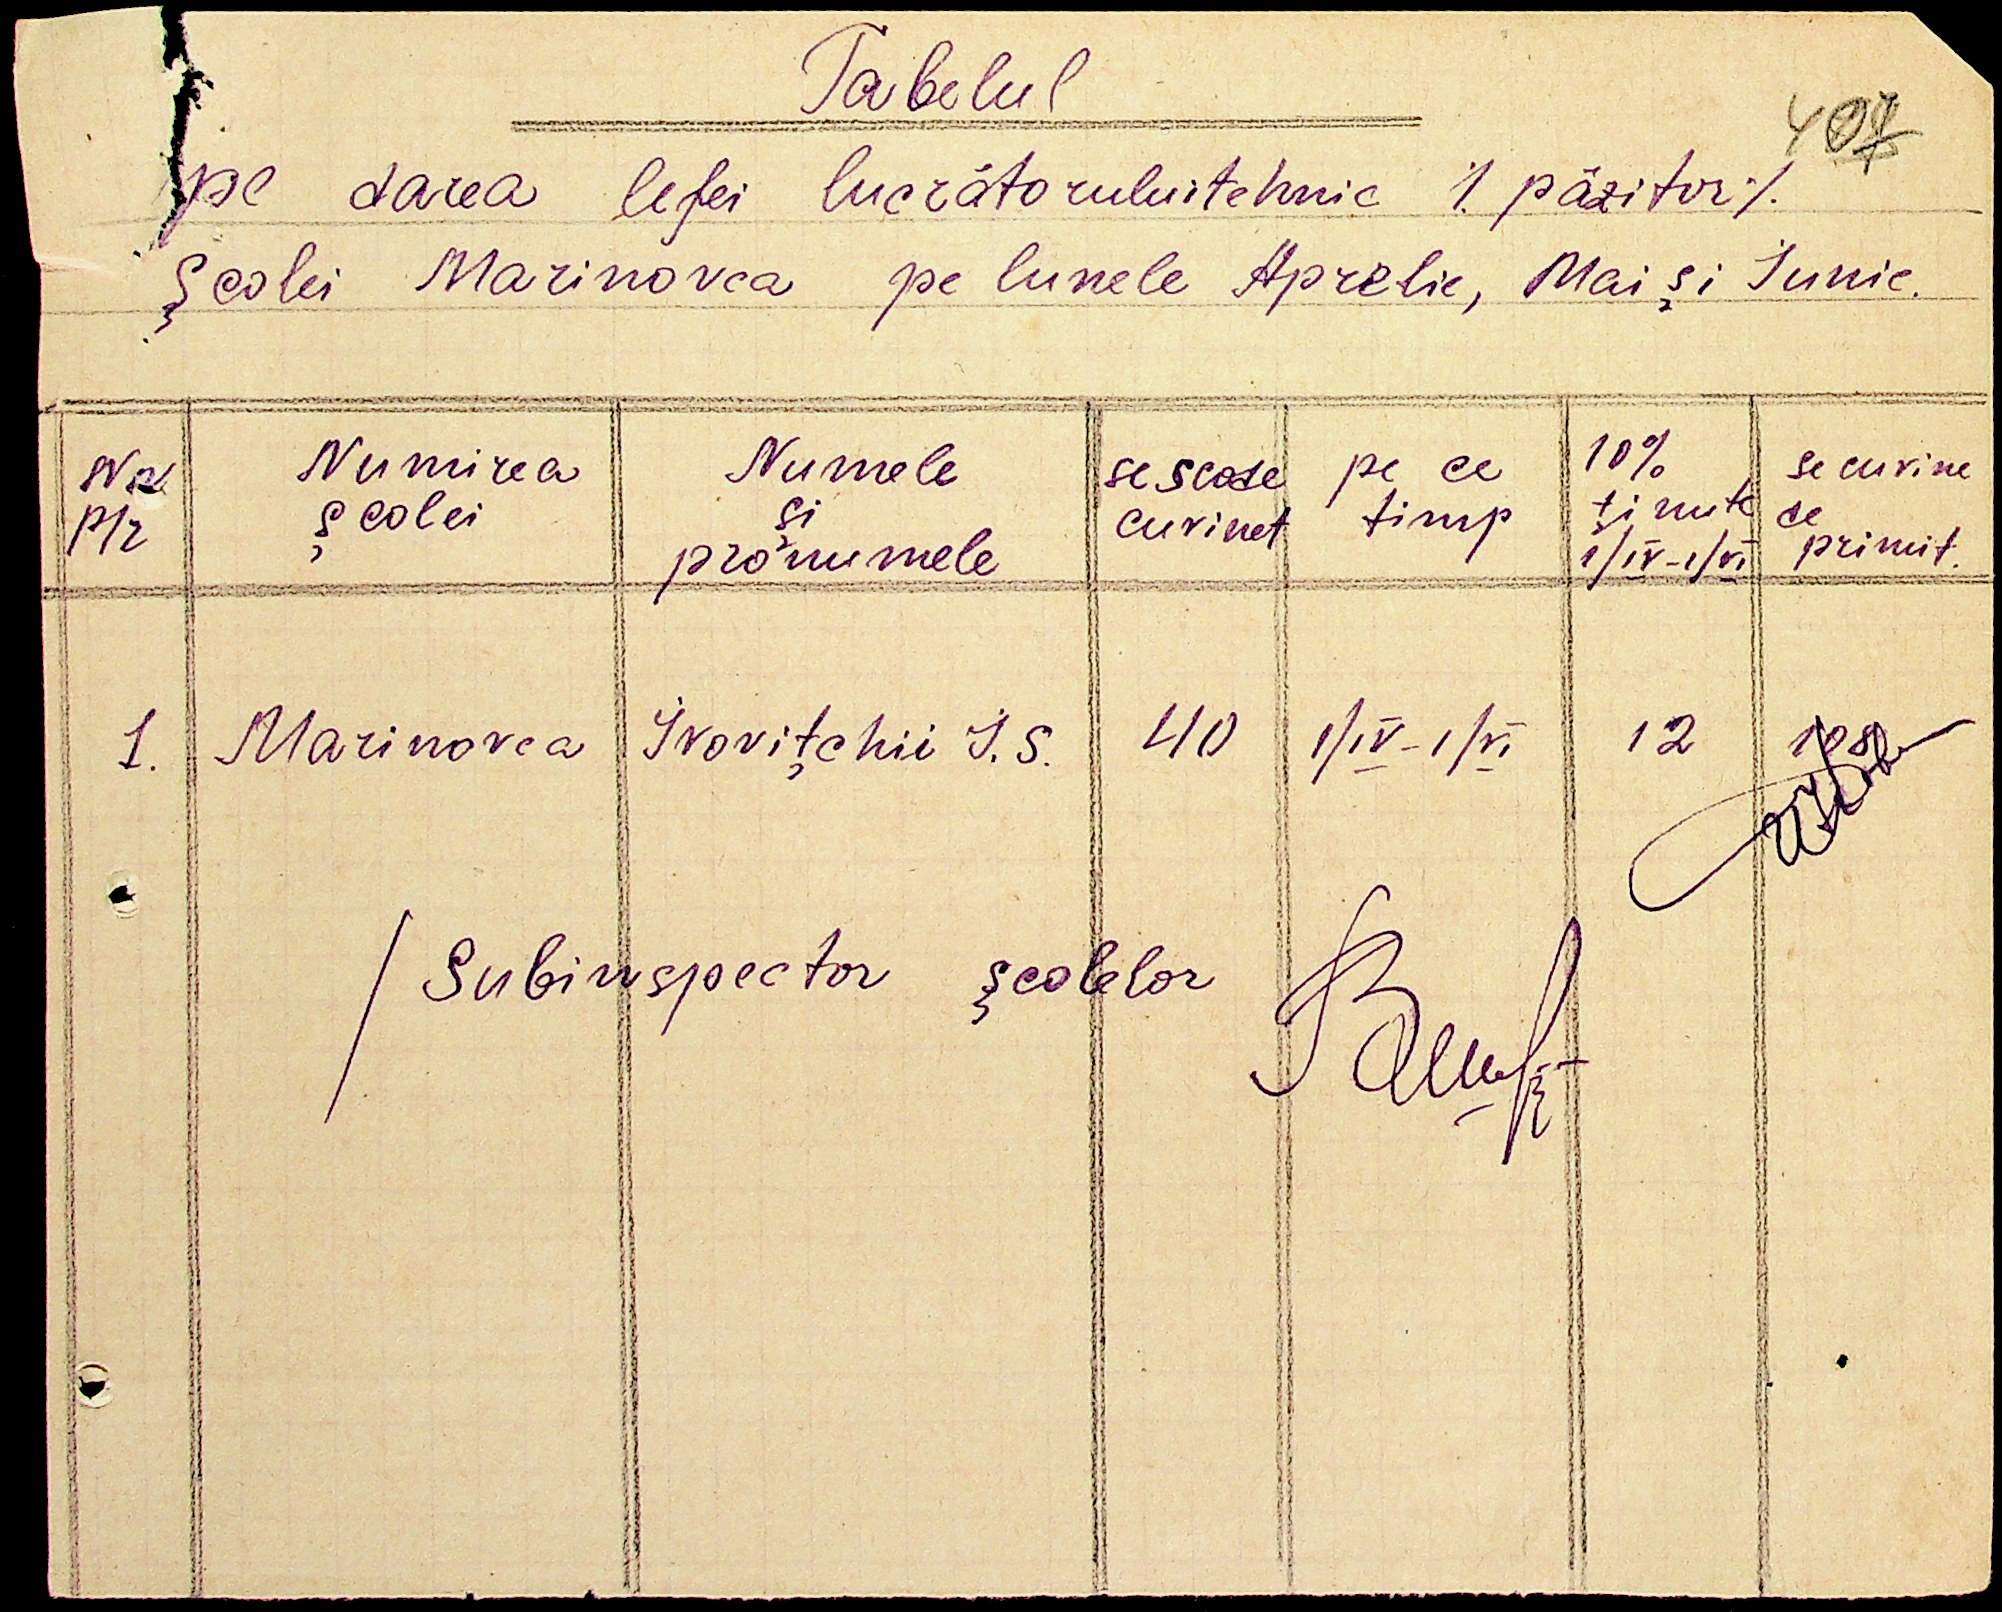 Tabelul
407
pe darea lefei lucrătoruluitehnic /. păzitor /.
Școlei Marinovca pe lunele Aprelie, Mai și Iunie.
Nr P/r | Numirea școlei | Numele și pronumele | se scade cuvinet | pe ce timp | 10% ținute 1/IV-1/VI | se cuvine de primit.
1. | Marinovca | Ivovițchii I. S. | 40 | 1/IV-1/VI | 12 | 108
/ Subinspector școlelor